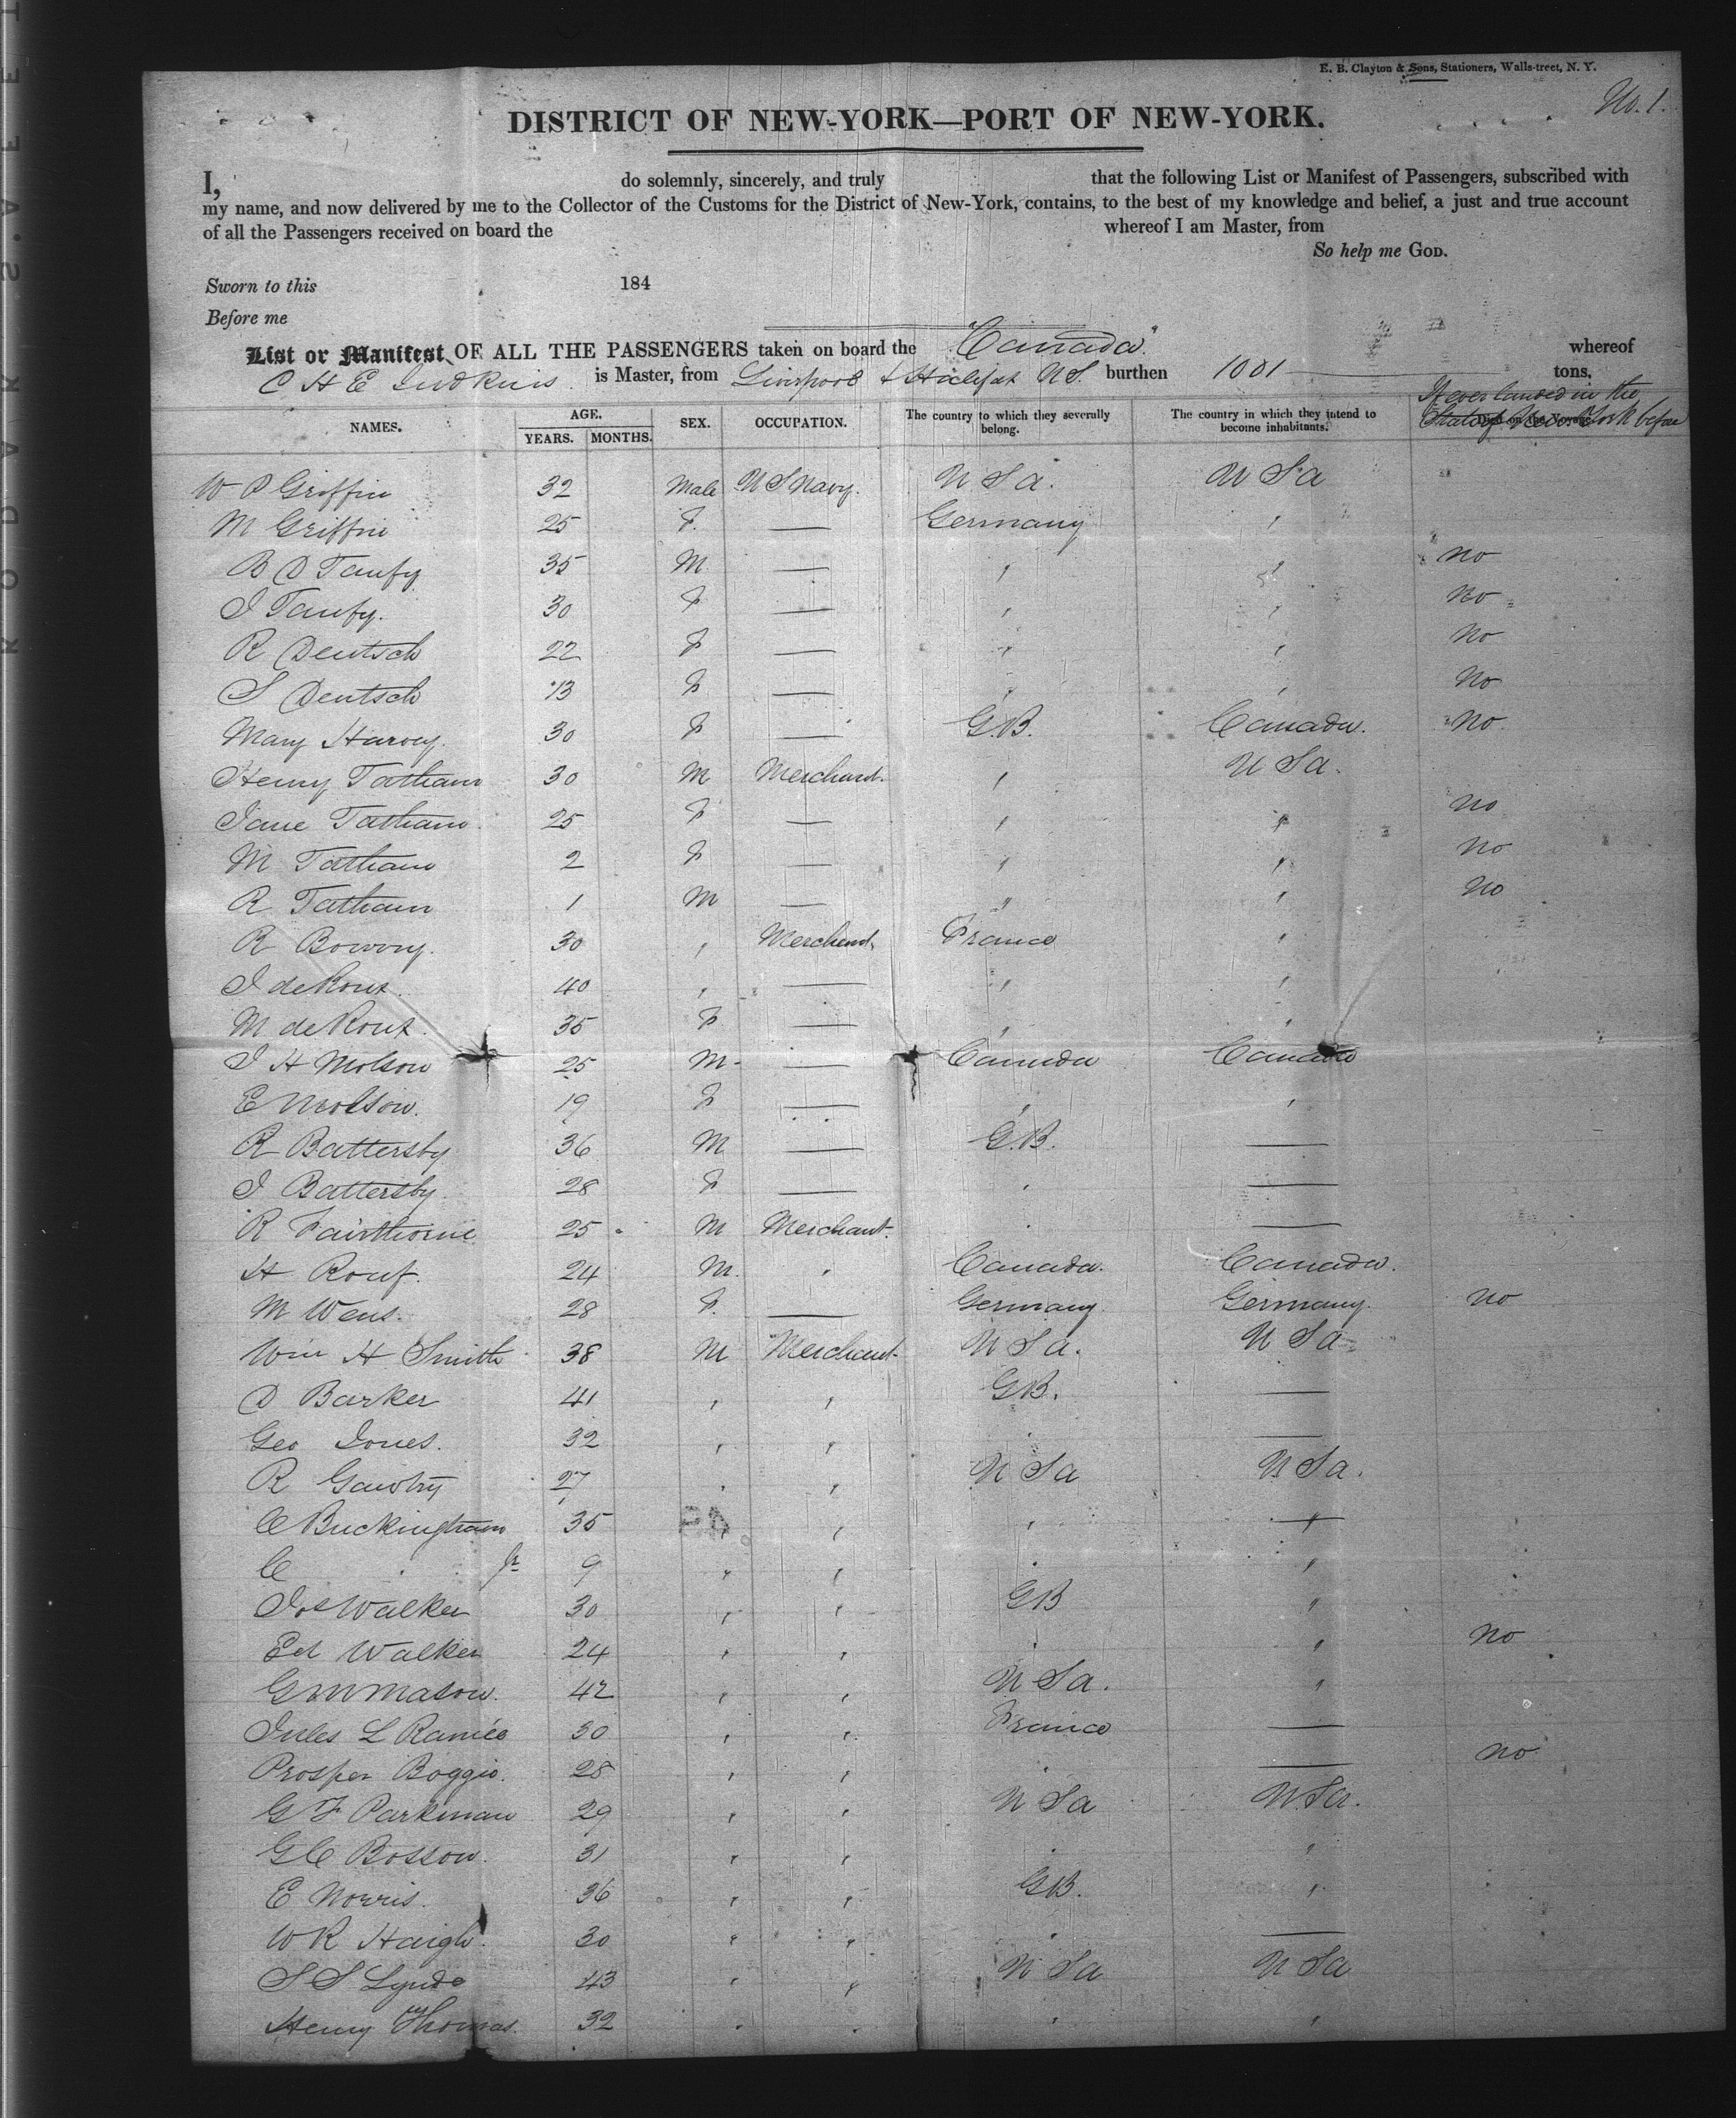 E. B. Clayton & Sons, Stationers, Walls-treet, N. Y.
No. 1.
DISTRICT OF NEW-YORK—PORT OF NEW-YORK.
I, do solemnly, sincerely, and truly that the following List or Manifest of Passengers, subscribed with
my name, and now delivered by me to the Collector of the Customs for the District of New-York, contains, to the best of my knowledge and belief, a just and true account
of all the Passengers received on board the whereof I am Master, from
So help me GOD.
Sworn to this 184
Before me
List or Manifest OF ALL THE PASSENGERS taken on board the "Canada" whereof
C H E Judkins is Master, from Liverpool & Halifax NS. burthen 1001 tons.
NAMES. AGE. YEARS. MONTHS. SEX. OCCUPATION. The country to which they severally belong. The country in which they intend to become inhabitants. Never landed in the State of New York before
W P Griffin 32 Male U S Navy. U S a. U S a
M Griffin 25 F. — Germany "
B D Taufy 35 M — " " no
J Taufy. 30 F — " " no
R Deutsch 22 F — " " no
S Deutsch 13 F — " " no
Mary Harvey. 30 F — G.B. Canada. no.
Henry Tatham 30 M Merchant. " U S a.
Jane Tatham 25 F — " " no
M Tatham 2 F — " " no
R Tatham 1 M — " " no
R 30 " Merchant. France "
J de 40 " — " "
M de 35 F — " "
J H Molson 25 M — Canada Canada
E Molson. 19 F — " "
R Battersby 36 M — G.B. —
J Battersby. 28 F — " —
R Fairthorne 25 M Merchant. " —
H 24 M. " Canada. Canada.
M Wens. 28 F. — Germany. Germany. no
Wm H Smith 38 M Merchant U S a. U S a
D Barker 41 " " GB. —
Geo Jones. 32 " " " —
R 27 " " U S a U S a.
C Buckingham 35 " " " "
C " Jr 9 " " " "
Jos Walker 30 " " GB "
Ed Walker 24 " " " " no
G W Mason. 42 " " U S a. "
Jules L 30 " " France —
Prosper Boggio. 28 " " " — no
G F Parkman 29 " " U S a U S a.
G C Bosson. 31 " " " "
E Norris. 36 " " GB. "
W R Haigh. 30 " " " —
S S Lynde 43 " " U S a U S a
Henry Thomas. 32 " " " "